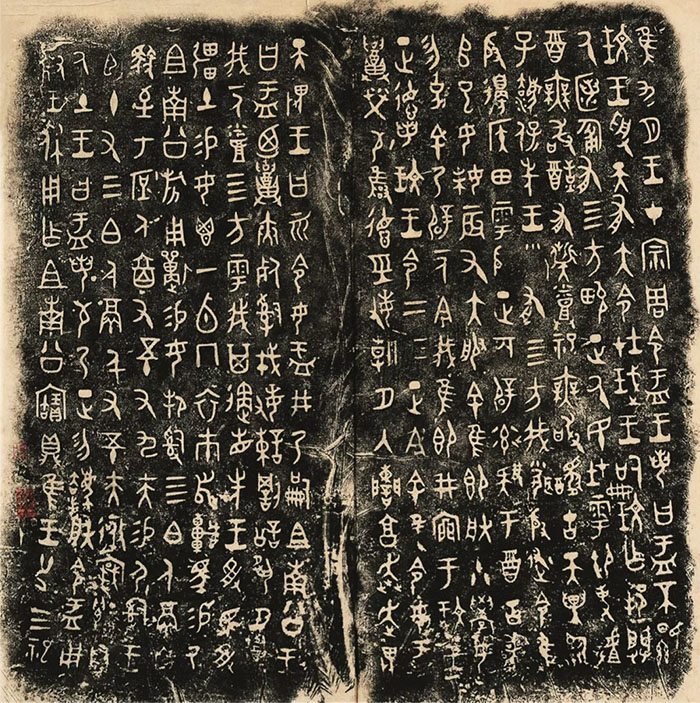 隹九月王才宗周令盂王若曰盂不顯
玟王受天有大令在珷王嗣玟乍邦闢
厥匿匍有四方畯正厥民在雩御事𠭯
酉無敢酖有祡烝祀無敢䤖古天異臨
子灋保先王有四方我聞殷述令隹
殷邊侯田雩殷正百辟率肄于酉古喪
𠂤已女妹辰又大服余隹即朕小學女
勿剋余乃辟一人今我隹即井㐭于玟王
正德若玟王令二三正今余隹令女盂
召榮敬雍德巠敏朝夕入讕享奔走畏
天畏王曰而令女盂井乃嗣且南公王
曰盂廼召夾死司戎敏諫罰訟夙夕召
我一人烝四方雩我其遹省先王受民受
疆土易女鬯一卣冂衣巿舄車馬易乃
且南公旂用狩易女邦司四白人鬲自
馭至于庶人六百又五十又九夫易尸司王
臣十又三白人鬲千又五十夫自
厥土王曰盂若敬乃正勿灋朕令盂用
對王休用乍且南公寶鼎隹王廿又三祀